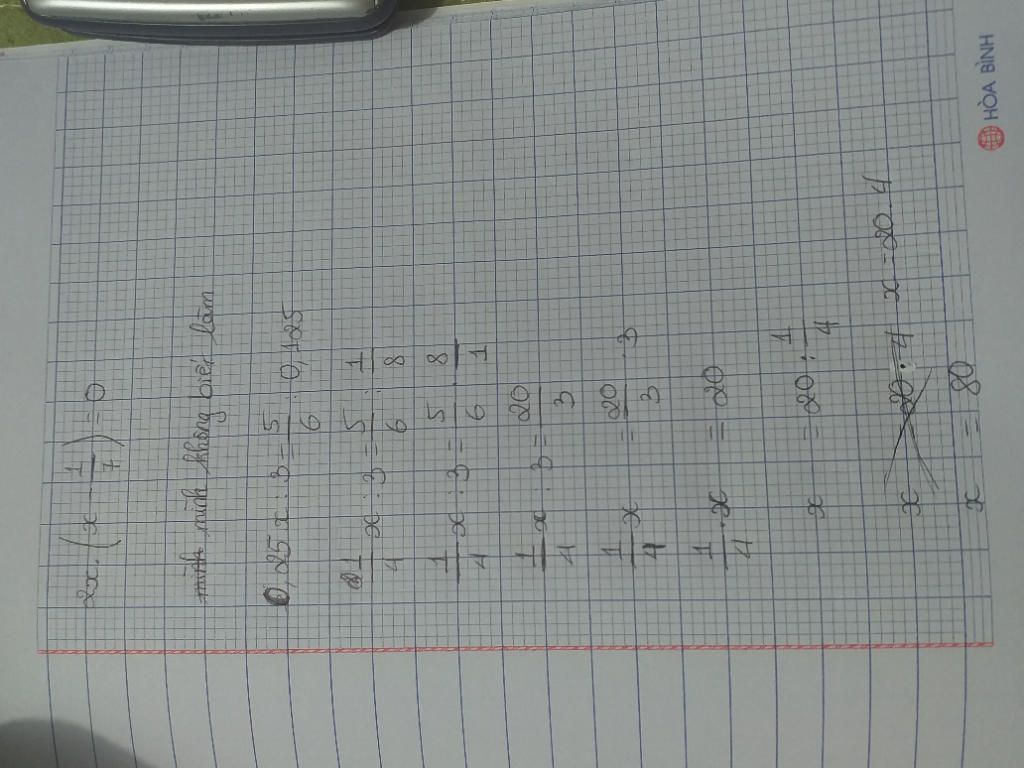 2x.(x - 1/7) = 0
mình không biết làm
0,25 x : 3 = 5/6 : 0,125
1/4 x : 3 = 5/6 : 1/8
1/4 x : 3 = 5/6 . 8/1
1/4 x : 3 = 20/3
1/4 x = 20/3 . 3
1/4 . x = 20
x = 20 : 1/4
x 20 : 4 x = 20 . 4
x = 80
HÒA BÌNH